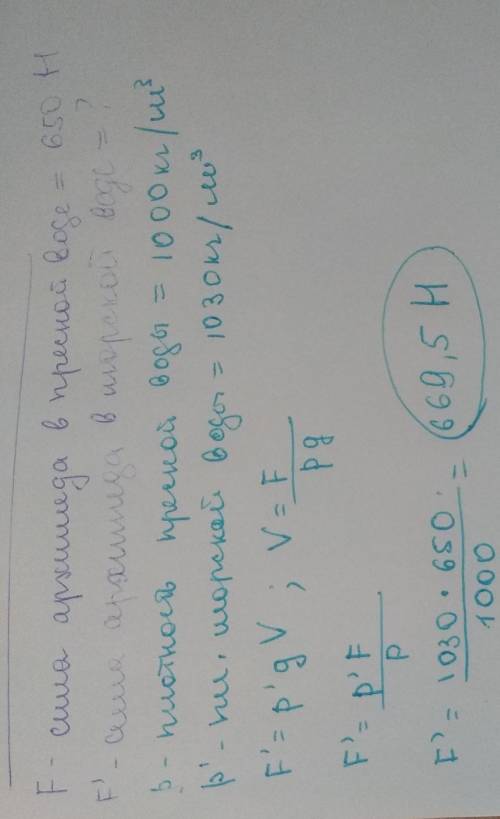 F - сила архимеда в пресной воде = 650 Н
F' - сила архимеда в морской воде = ?
р - плотность пресной воды = 1000 кг/м³
р' - пл. морской воды = 1030 кг/м³
F' = p'gV ; V = F / pg
F' = p'F / p
F' = 1030 · 650 / 1000 = 669,5 Н